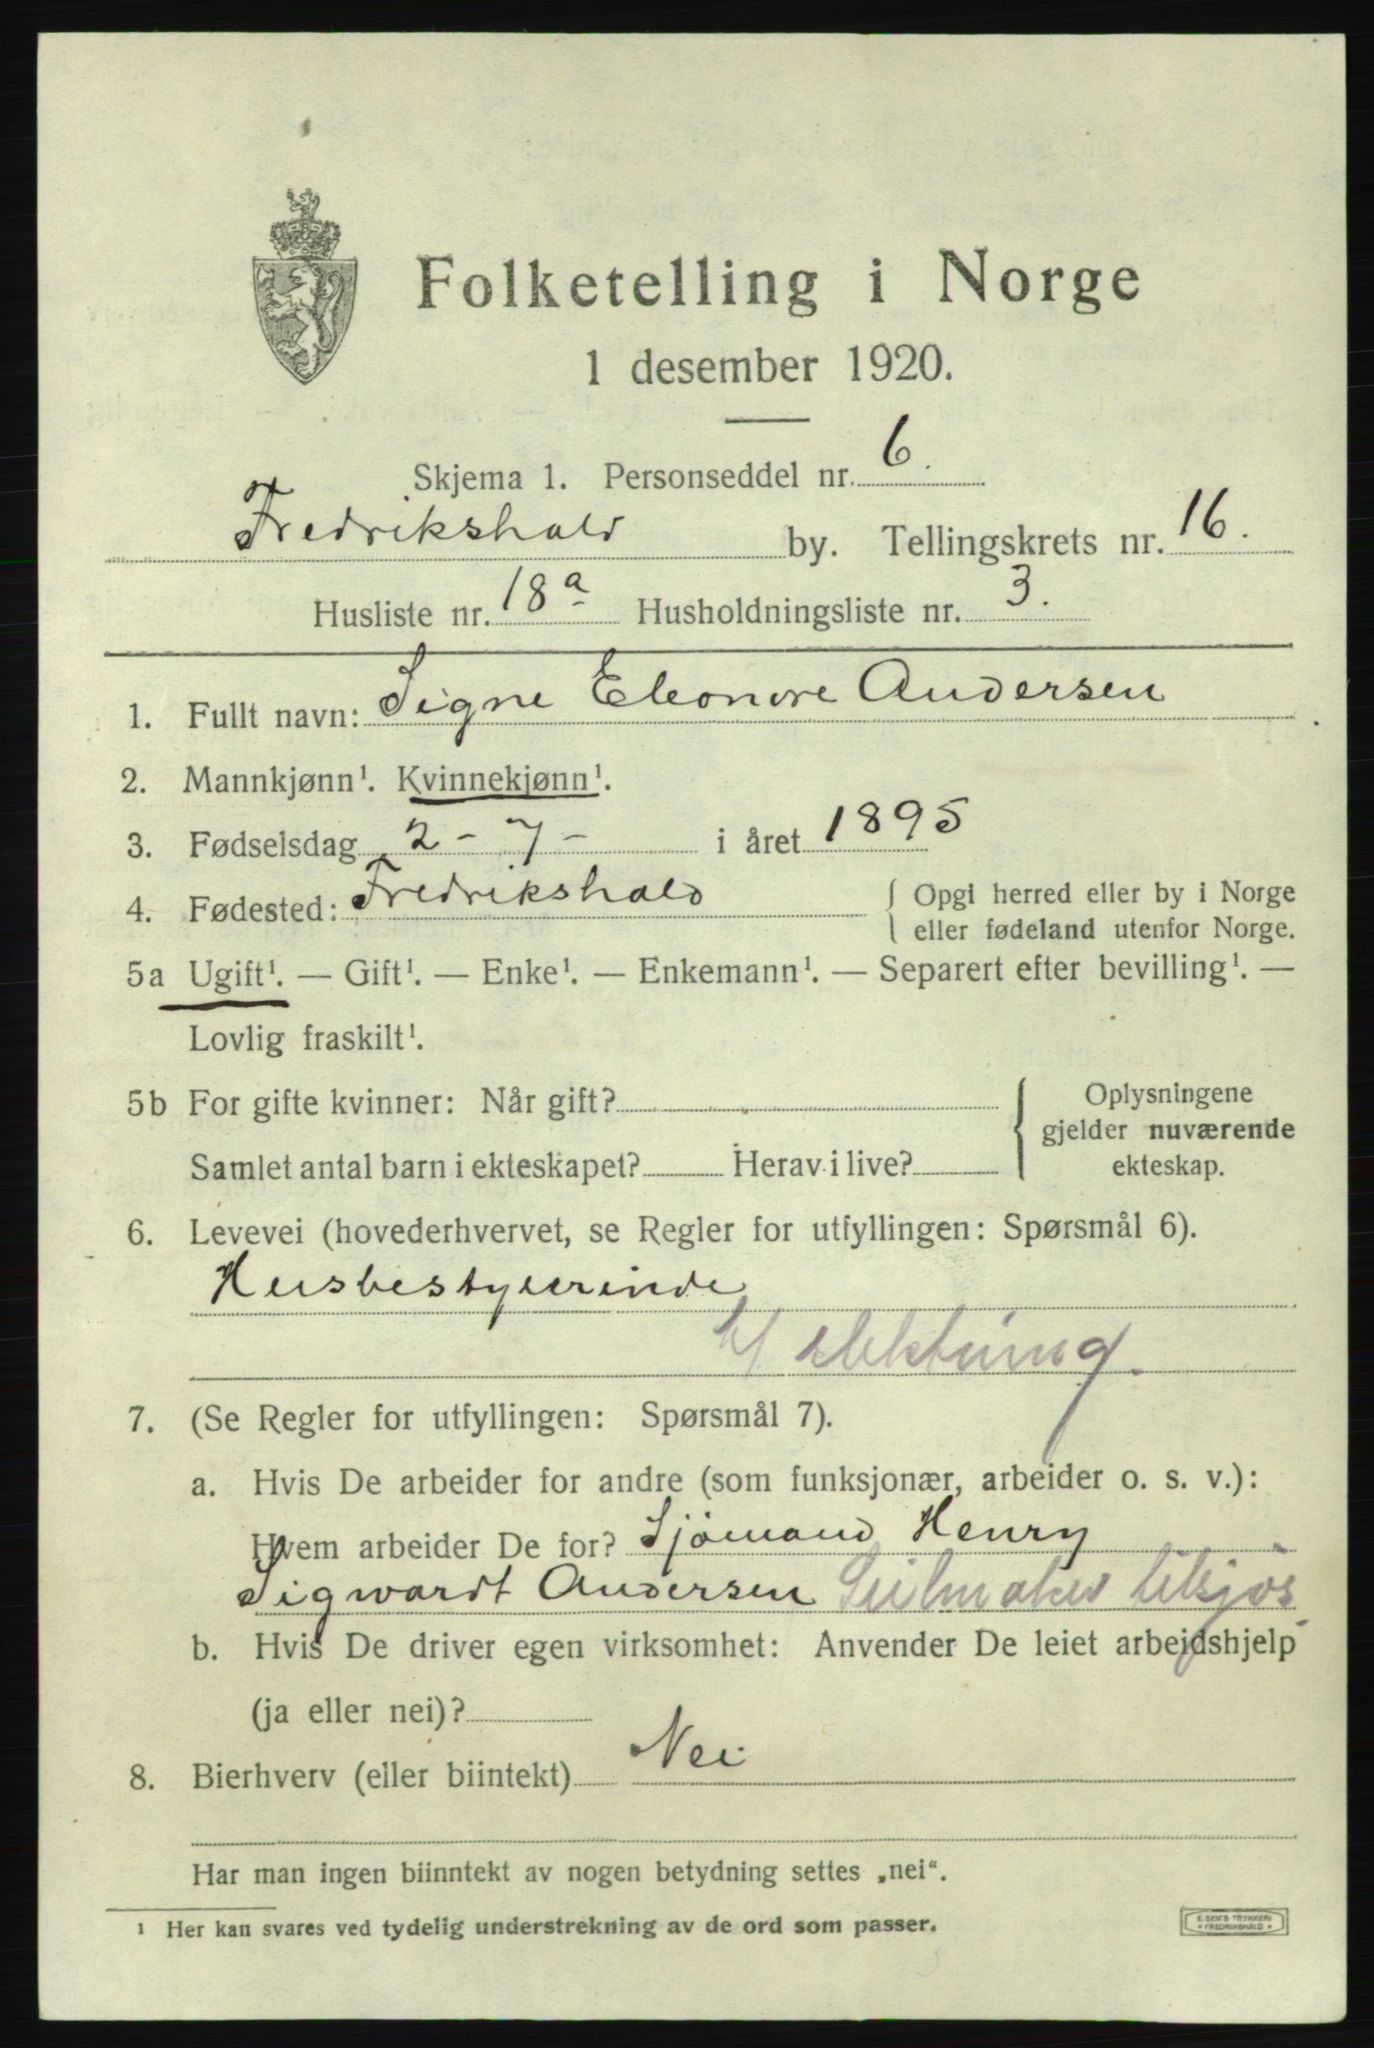 Folketelling i Norge
1 desember 1920.
Skjema 1. Personseddel nr. 6.
Fredrikshald by. Tellingskrets nr. 16.
Husliste nr. 18a Husholdningsliste nr. 3.
1. Fullt navn: Signe Eleonore Andersen
2. Mannkjønn¹. Kvinnekjønn¹.
3. Fødselsdag 2 - 7 - i året 1895
4. Fødested: Fredrikshald { Opgi herred eller by i Norge
eller fødeland utenfor Norge.
5a Ugift¹. — Gift¹. — Enke¹. — Enkemann¹. — Separert efter bevilling¹. —
Lovlig fraskilt¹.
5b For gifte kvinner: Når gift?
Samlet antal barn i ekteskapet? Herav i live?
} Oplysningene
gjelder nuværende
ekteskap.
6. Levevei (hovederhvervet, se Regler for utfyllingen: Spørsmål 6).
Husbestyrerinde
7. (Se Regler for utfyllingen: Spørsmål 7).
a. Hvis De arbeider for andre (som funksjonær, arbeider o. s. v.):
Hvem arbeider De for? Sjömand Henry
Sigwardt Andersen Seilmaker tilsjös
b. Hvis De driver egen virksomhet: Anvender De leiet arbejdshjelp
(ja eller nei)?
8. Bierhverv (eller biintekt) Nei
Har man ingen biinntekt av nogen betydning settes „nei“.
¹ Her kan svares ved tydelig understrekning av de ord som passer.
E. SEM'S TRYKKERI
* FREDRIKSHALD *